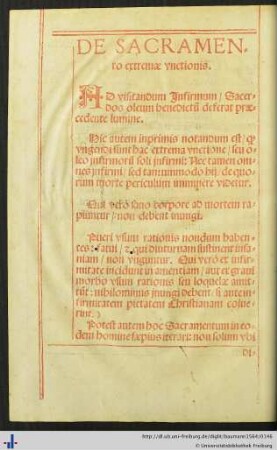 DE SACRAMEN-
to extremæ vnctionis.
AD visitandum Infirmum / Sacer-
dos oleum benedictũ deferat præ-
cedente lumine.
Hic autem inprimis notandum est / ꝙ
vngendi sunt hac extrema vnctione / seu o-
leo infirmorũ soli infirmi: Nec tamen om-
nes infirmi, sed tantummodo hij / de quo-
rum morte periculum imminere videtur.
Qui verò sano corpore ad mortem ra-
piuntur / non debent inungi.
Pueri vsum rationis nondum haben-
tes: Fatui / & qui diuturnam sustinent insa-
niam / non vnguntur. Qui verò ex infir-
mitate incidunt in amentiam / aut ex graui
morbo vsum rationis seu loquelæ amit-
tũt: nihilominus inungi debent, si ante in-
firmitatem pietatem Christianam colue-
rint.
Potest autem hoc Sacramentum in eo-
dem homine sæpius iterari: non solum vbi
http://dl.ub.uni-freiburg.de/diglit/baumann1584/0146
© Universitätsbibliothek Freiburg